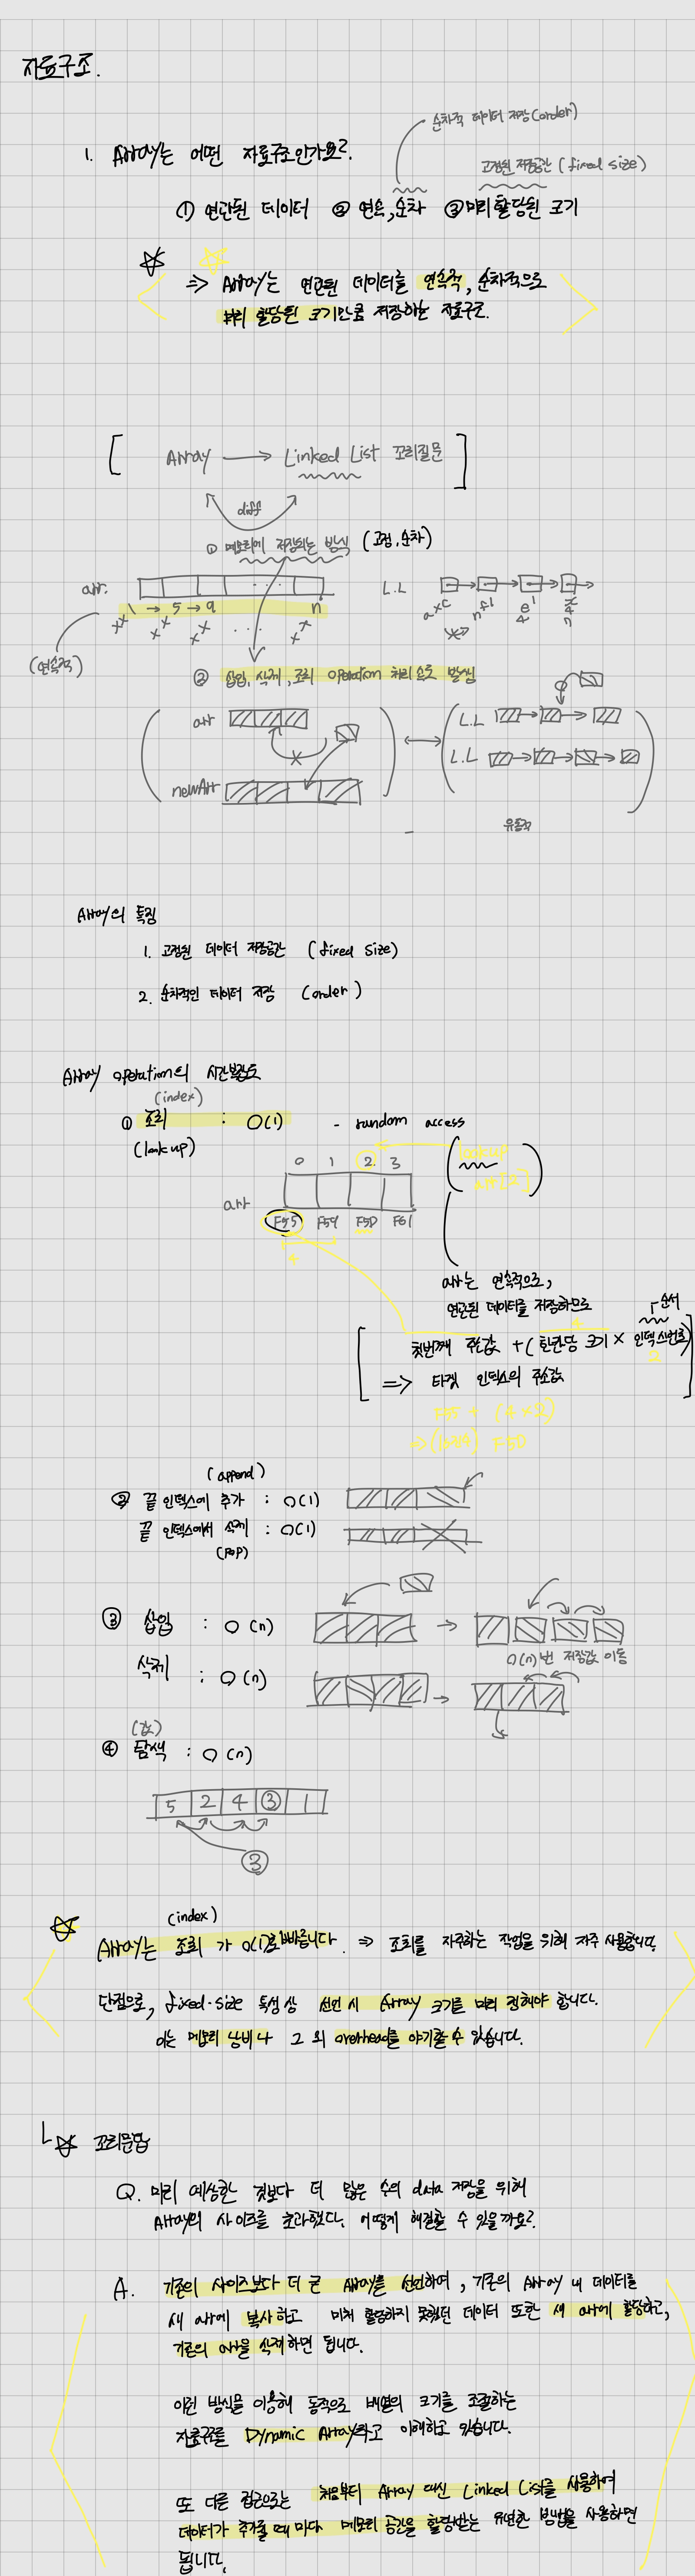 자료구조.
순차적 데이터 저장(order)
1. Array는 어떤 자료구조인가요?
고정된 저장공간 (fixed size)
① 연관된 데이터 ② 연속,순차 ③미리 할당된 크기
⇒ Array는 연관된 데이터를 연속적, 순차적으로
미리 할당된 크기만큼 저장하는 자료구조.
[ Array → Linked List 꼬리질문 ]
diff
① 메모리에 저장되는 방식 (고정,순차)
arr. L.L
1 → 5 → 9 ... n
(연속적)
② 삽입, 삭제, 조회 operation 처리속도 발생
arr L.L
L.L
newArr
유동적
Array의 특징
1. 고정된 데이터 저장공간 (fixed size)
2. 순차적인 데이터 저장 (order)
Array operation의 시간복잡도
(index)
① 조회 : O(1) - random access
(lookup)
lookup
0 1 2 3
arr[2]
arr
F55 F59 F5D F61
arr는 연속적으로,
연관된 데이터를 저장하므로
순서
4
첫번째 주소값 + (한칸당 크기 × 인덱스번호)
2
⇒ 타겟 인덱스의 주소값
F55 + (4×2)
⇒(16진수) F5D
(append)
② 끝 인덱스에 추가 : O(1)
끝 인덱스에서 삭제 : O(1)
(pop)
③ 삽입 : O(n)
O(n)번 저장값 이동
삭제 : O(n)
(값)
④ 탐색 : O(n)
5 2 4 ③ 1
③
(index)
Array는 조회가 O(1)로 빠릅니다. ⇒ 조회를 자주하는 작업을 위해 자주 사용합니다.
단점으로, fixed-size 특성상 선언 시 Array 크기를 미리 정해야 합니다.
이는 메모리 낭비나 그 외 overhead를 야기할 수 있습니다.
꼬리문답
Q. 미리 예상한 것보다 더 많은 수의 data 저장을 위해
Array의 사이즈를 초과했다. 어떻게 해결할 수 있을까요?
A. 기존의 사이즈보다 더 큰 Array를 선언하여, 기존의 Array 내 데이터를
새 arr에 복사하고 미처 할당하지 못했던 데이터 또한 새 arr에 할당하고,
기존의 arr을 삭제하면 됩니다.
이런 방식을 이용해 동적으로 배열의 크기를 조절하는
자료구조를 Dynamic Array라고 이해하고 있습니다.
또 다른 접근으로는 처음부터 Array 대신 Linked List를 사용하여
데이터가 추가될 때 마다 메모리 공간을 할당받는 유연한 방법을 사용하면
됩니다.